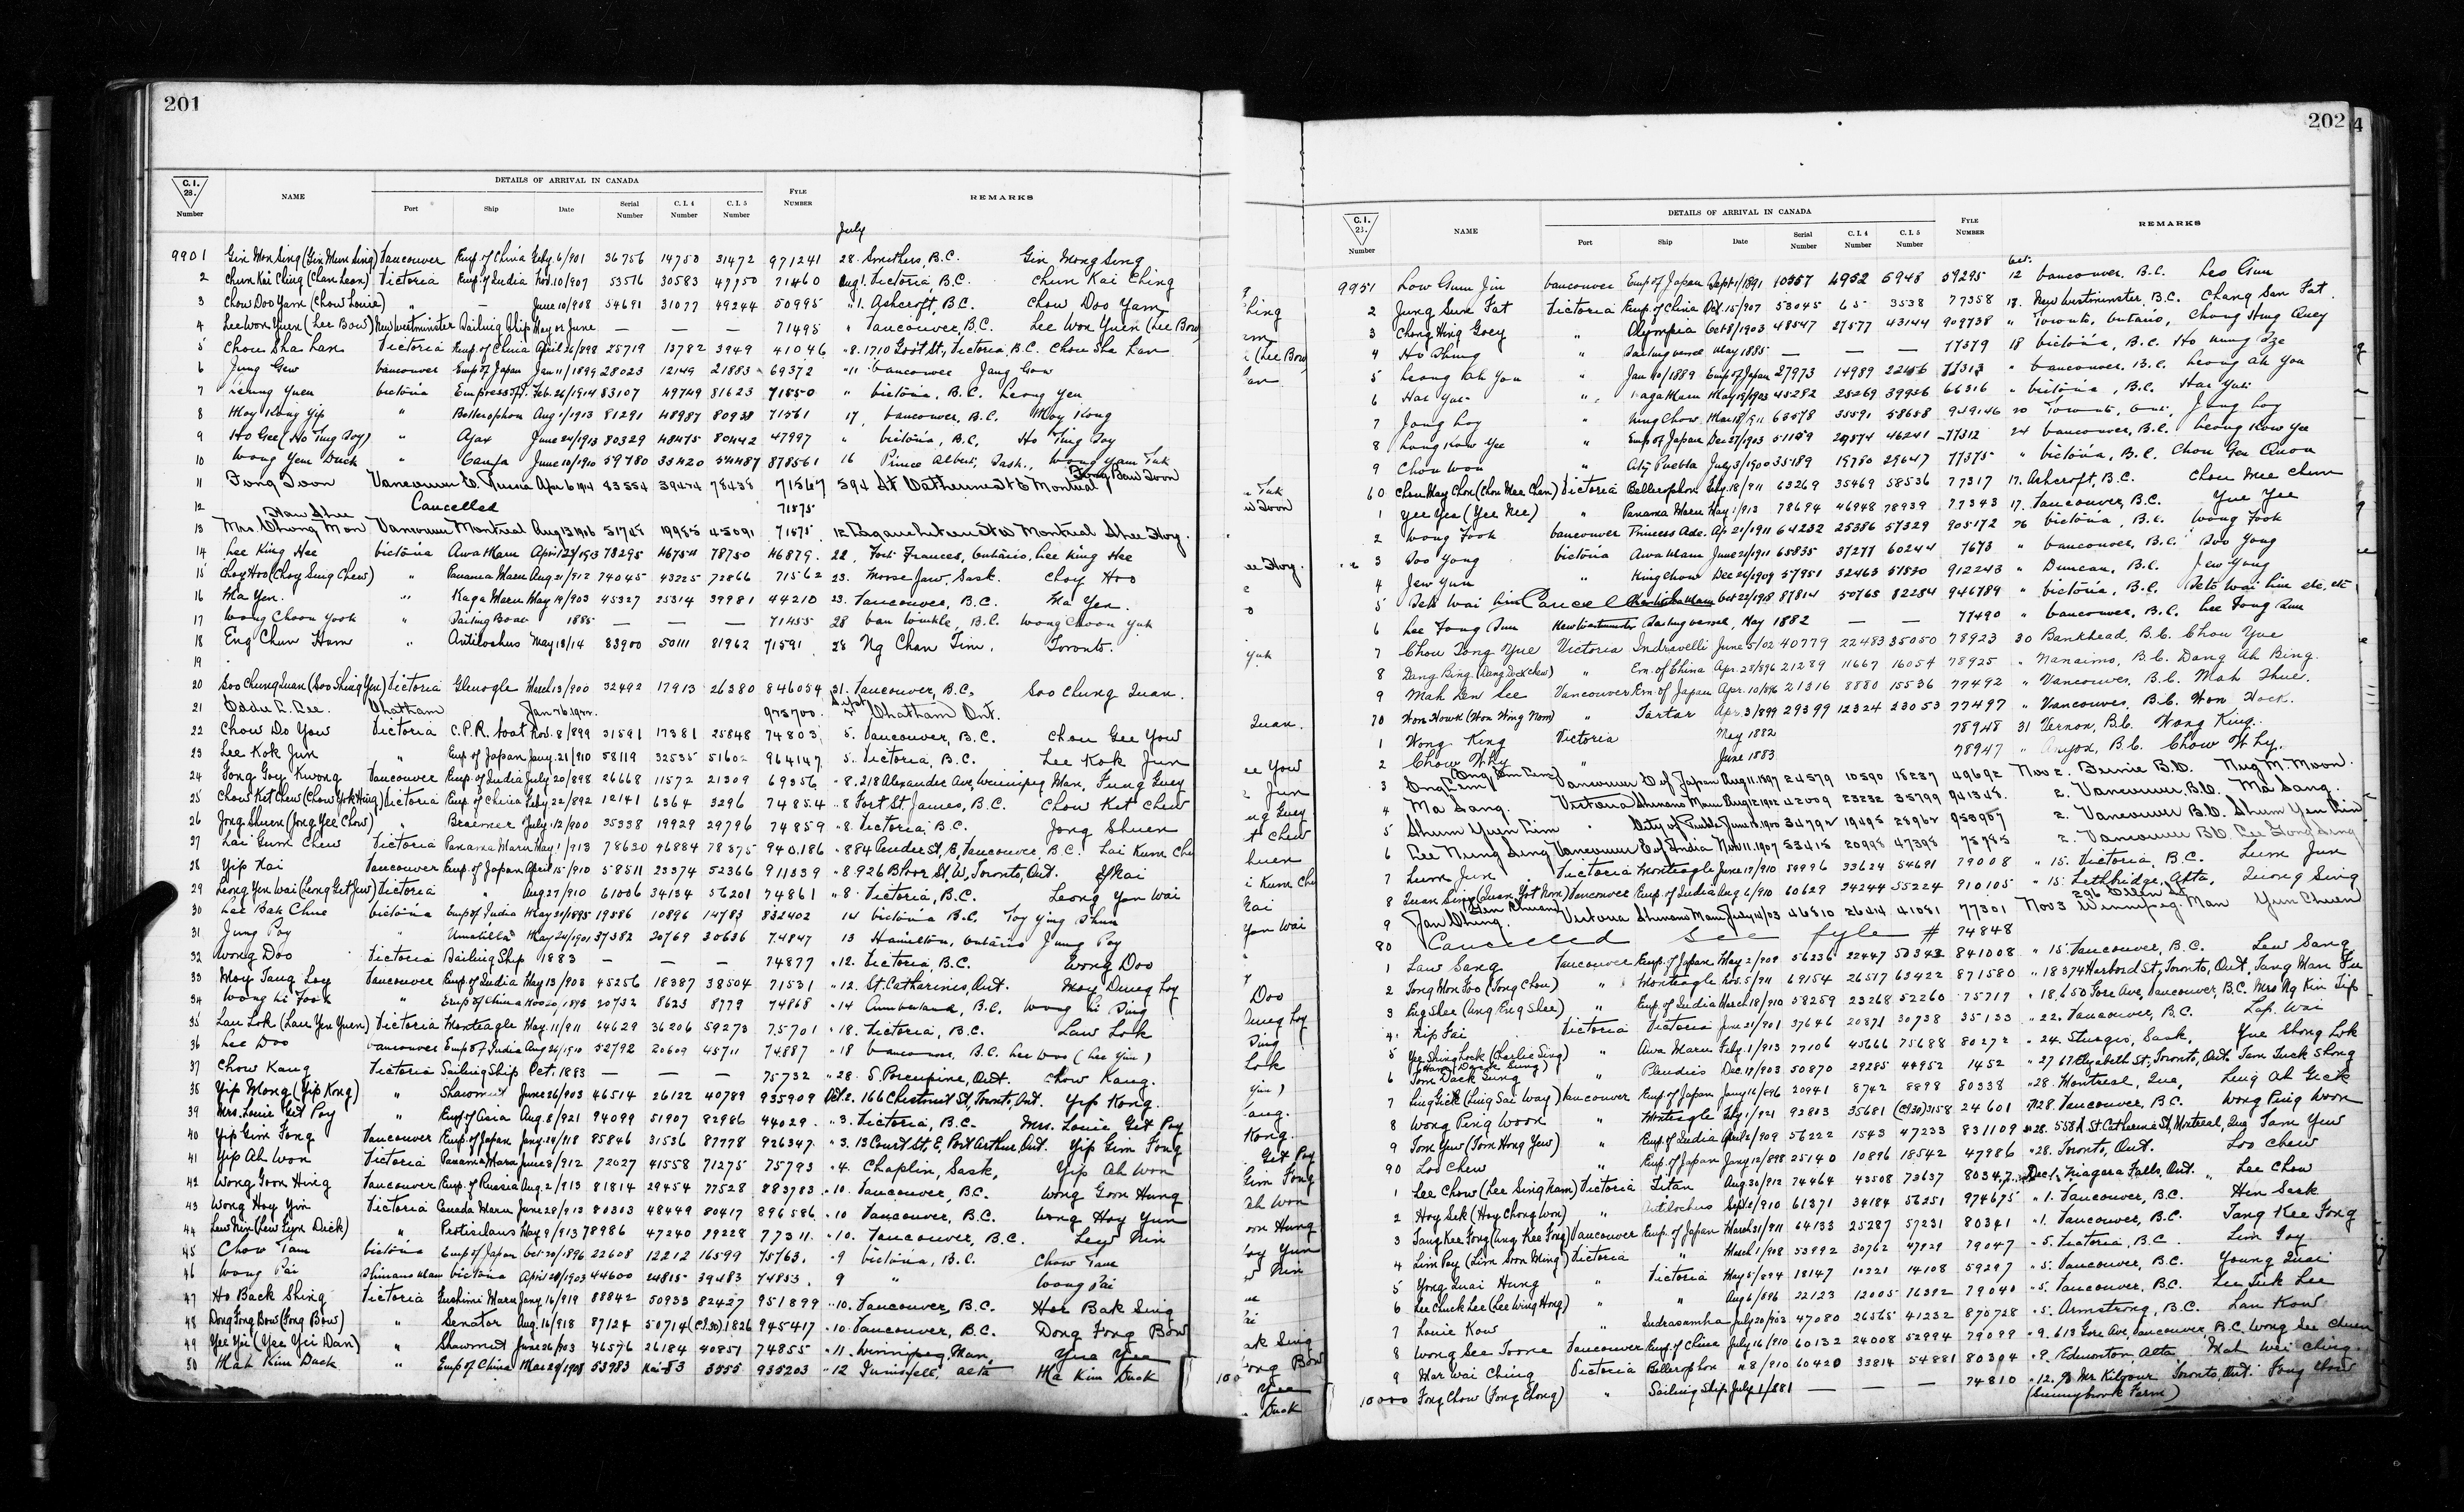 201
C.I. 28. Number NAME DETAILS OF ARRIVAL IN CANADA Port Ship Date Serial Number C.I.4 Number C.I.5 Number FYLE NUMBER REMARKS
July
9901 Gin Mon Sing (Gin Mun Sing) Vancouver Emp. of China Feby. 6/901 36756 14750 31472 971241 28. Smithers, B.C. Gin Mong Sing
2 Chun Kai Ching (Chan Lean) Victoria Emp. of India Nov. 10/907 53576 30583 47750 71460 Aug 1. Victoria, B.C. Chun Kai Ching
3 Chow Doo Yam (Chow Louie) " — June 10/908 54691 31077 49244 50995 " 1. Ashcroft, B.C. Chow Doo Yam
4 Lee Won Yuen (Lee Bow) New Westminster Sailing Ship May or June — — — 71495 " Vancouver, B.C. Lee Won Yuen (Lee Bow
5 Chou Sha Lan Victoria Emp of China April 26/898 25719 13782 3949 41046 " 8. 1710 Govt St., Victoria, B.C. Chou Sha Lan
6 Jung Gew Vancouver Emp of Japan Jan 11/1899 28023 12149 21883 69372 " 11 Vancouver Jang Gow
7 Leung Yuen Victoria Feb. 26/1914 83107 49749 81623 71550 " Victoria, B.C. Leong Yen
8 Moy Kong Yip " Bellerophon Aug 1/1913 81291 48987 80938 71561 17. Vancouver, B.C. Moy Kong
9 Ho Gee (Ho Ting Toy) " Ajax June 24/1913 80329 48475 80442 47997 " Victoria, B.C. Ho Ting Toy
10 Wong Yem Duck " Canfa June 10/1910 59780 33420 54487 878561 16 Prince Albert, Sask., Wong Yam Tuk
11 Fong Toon Vancouver E. Russia Apr 6 1914 83554 39474 78438 71567 594 St Catherine St E Montreal Fong Bow Toon
12 Cancelled 71575
13 Mrs. Chong Mon Vancouver Montreal Aug 13 1906 51748 19985 45091 71575 12 Lagauchetiere St W Montreal Shee Hoy.
14 Lee King Hee Victoria Awa Maru April 29/1913 78295 46754 78750 46879. 22, Fort Frances, Ontario, Lee King Hee
15 Choy Hoo (Choy Sing Chew) " Panama Maru Aug 21/912 74045 43225 72866 71562 23. Moose Jaw, Sask. Choy Hoo
16 Ma Yen. " Kaga Maru May 19/903 45327 25314 39981 44210 23. Vancouver, B.C. Ma Yen.
17 Wong Choon Yook " Sailing Boat 1885 — — — 71455 28 Van Winkle, B.C. Wong Choon Yuk
18 Eng Chun Ham " Antilochus May 13/14 83900 50111 81962 71591 28 Ng Chan Tim, Toronto.
19
20 Soo Chung Quan (Soo Shing Yen) Victoria Glenogle March 13/900 32492 17913 26380 846054 31. Vancouver, B.C. Soo Chung Quan.
21 Eddie L. Lee. Chatham Jan 26. 1922. 973700. Sept Chatham Ont.
22 Chow Do You Victoria C.P.R. boat Nov. 8/899 31591 17381 25848 74803 5. Vancouver, B.C. Chou Gee Yow
23 Lee Kok Jun " Emp of Japan Jany. 21/910 58119 32535 51602 964147 5. Victoria, B.C. Lee Kok Jun
24 Fong Goy Kwong Vancouver Emp. of India July 20/898 26668 11572 21309 69356 " 8. 218 Alexander Ave, Winnipeg Man. Fung Guey
25 Chow Ket Chew (Chow Yok Hing) Victoria Emp. of China Feby. 22/892 12141 6364 3296 74854 " 8 Fort St. James, B.C. Chow Ket Chew
26 Jong Shuen (Jong Yee Chow) " Braemer July. 12/900 35338 19929 29796 74859 " 8. Victoria, B.C. Jong Shuen
27 Lai Gum Chew Victoria Panama Maru May 1/913 78620 46884 78375 940186 " 884 Pender St, E, Vancouver, B.C. Lai Kum Chu
28 Yip Kai Vancouver Emp. of Japan April 15/910 58511 23374 52366 911339 " 8. 926 Bloor St. W, Toronto, Ont. Y Kai
29 Leong Yen Wai (Leong Get Jew) Victoria " Aug 27/910 61006 34134 56201 74861 " 8. Victoria, B.C. Leong Yon Wai
30 Lee Bak Chue Victoria Emp of India May 21/1895 19586 10896 14783 832402 14 Victoria B.C. Toy Ying Shun
31 Jung Poy " Umatilla May 24/1901 37382 20769 30636 74847 13 Hamilton, Ontario Jung Poy
32 Wong Doo Victoria Sailing Ship 1883 — — — 74877 " 12. Victoria, B.C. Wong Doo
33 Moy Tang Loy Vancouver Emp. of India May 13/903 45256 18387 38504 71531 " 12. St. Catharines, Ont. Moy Dung Loy
34 Wong Li Took " Emp of China Nov 20, 1895 20732 8623 8779 74868 " 14 Cumberland, B.C. Wong Li Ding
35 Lau Lok (Lau Yen Yuen) Victoria Monteagle May. 11/911 64629 36206 59273 75701 " 18. Victoria, B.C. Law Lok
36 Lee Doo Vancouver Emp of India Aug 26/1910 52792 20609 45711 74887 " 18 Vancouver, B.C. Lee Doo (Lee Yin)
37 Chow Kang Victoria Sailing Ship Oct. 1883 — — — 75732 " 28. S. Porcupine, Ont. Chow Kang.
38 Yip Mong (Yip Kong) " Shawmut June 26/903 46514 26122 40789 935909 Oct. 2. 166 Chestnut St, Toronto, Ont. Yip Kong.
39 Mrs. Louie Get Poy " Emp. of Asia Aug. 8/921 94099 51907 82986 44029. " 3. Victoria, B.C. Mrs. Louie Get Poy
40 Yip Gim Fong Vancouver Emp. of Japan Jany. 14/918 85846 31536 87778 926347. " 3. 13 Court St, E, Port Arthur, Ont. Yip Gim Fong
41 Yip Ah Won Victoria Panama Maru June 8/912 72027 41558 71275 75793 " 4. Chaplin, Sask, Yip Ah Won
42 Wong Goon Hing Vancouver Emp. of Russia Aug. 2/913 81814 29454 77528 883783 " 10. Vancouver, B.C. Wong Goon Hung
43 Wong Hoy Yin Victoria Canada Maru June 28/913 80303 48449 80417 896586 " 10 Vancouver, B.C. Wong Hoy Yun
44 Lew Nin (Lew Gim Dick) " Protesilaus May 9/913 78986 47240 79228 77311. " 10. Vancouver, B.C. Lew Nin
45 Chow Tam Victoria Emp of Japan Oct 20/1896 22608 12212 16599 75763. " 9 Victoria, B.C. Chow Tam
46 Wong Pai Shinano Maru Victoria April 28/1903 44600 24815 39483 74853. 9 " Wong Pai
47 Ho Back Shing Victoria Fushimi Maru Jany. 16/919 88842 50933 82427 951899 " 10. Vancouver, B.C. Hor Bak Sing
48 Dong Fong Bow (Fong Bow) " Senator Aug. 16/918 87124 50714 (C.I.30) 1826 945417 " 10. Vancouver, B.C. Dong Fong Bow
49 Yee Yui (Yee Yui Dan) " Shawmut June 26/903 46576 26184 40851 74855 " 11. Winnipeg, Man. Yue Yee
50 Mah Kim Duck " Emp of China Mar 29/1908 53983 3555 935203 " 12 Innisfail, Alta Ma Kim Duck
202
C.I. 28. Number NAME DETAILS OF ARRIVAL IN CANADA Port Ship Date Serial Number C.I.4 Number C.I.5 Number FYLE NUMBER REMARKS
Oct.
9951 Low Gum Jin Vancouver Emp of Japan Sept 1/1891 10357 4952 5948 59295 12 Vancouver, B.C. Leo Gim
2 Jung Sun Fat Victoria Emp of China Oct. 15/907 53045 65 3538 77358 18. New Westminster, B.C. Chang San Fat.
3 Chong Hing Goey " Olympia Oct 8/1903 48547 27577 43144 909738 " Toronto, Ontario, Chong Hing Quey
4 Ho Shung " Sailing vessel May 1885 — — — 77379 18 Victoria, B.C. Ho Hung Sze
5 Leong Ah You " Jan 10/1889 Emp of Japan 27973 14989 22156 77313 " Vancouver, B.C. Leong Ah You
6 Har Yue " Kaga Maru May 19/1903 45292 25269 39926 66316 " Victoria, B.C. Har Yuk
7 Jong Loy " Ning Chow Mar 18/911 63578 35591 58658 949146 20 Toronto, Ont, Jung Loy
8 Long Kow Yee " Emp of Japan Dec 27/1903 51159 29574 46241 77312 24 Vancouver, B.C. Leong Kow Yee
9 Chou Won " City Puebla July 3/1900 35189 19780 29647 77375 " Victoria, B.C. Chou Gee Quon
60 Chou May Chon (Chou Mee Chen) Victoria Bellerophon Feby. 18/911 63269 35469 58536 77317 17. Ashcroft, B.C. Chou Mee Chun
1 Yee Yea (Yee Nee) " Panama Maru May 1/913 78694 46948 78939 77343 17. Vancouver, B.C. Yue Yee
2 Wong Fook Vancouver Princess Ade. Ap 21/1911 64232 25386 57329 905172 26 Victoria, B.C. Wong Fook
3 Soo Yong Victoria Awa Maru June 21/1911 65835 37277 60244 7673 " Vancouver, B.C. Soo Yong
4 Jew Yun " King Chow Dec 26/1909 57951 32463 51530 912243 " Duncan, B.C. Jew Yong
5 Seto Wai Lim Cancel Oct 22/1918 87814 50765 82284 946789 " Victoria, B.C. Seto Wai Lim etc, etc
6 Lee Fong Sun New Westminster Sailing vessel, May 1882 — — 77490 " Vancouver, B.C. Lee Fong Sun
7 Chou Tong Yue Victoria Indravelli June 5/02 40779 22483 35050 78923 30 Bankhead, B.C. Chou Yue
8 Dang Bing (Dang Dock Chew) " Em. of China Apr. 28/896 21289 11667 16054 78925 " Nanaimo, B.C. Dang Ah Bing.
9 Mah Den See Vancouver Em of Japan Apr. 10/896 21316 8880 15536 77492 " Vancouver, B.C. Mah Shue.
70 Won Howk (Won Wing Nom) " Tartar Apr. 3/899 29399 12324 23053 77497 " Vancouver, B.C. Won Hock.
1 Wong King Victoria May 1882 78948 31 Vernon, B.C. Wong King.
2 Chow Why " June 1883 78947 " Anyox, B.C. Chow Why.
3 Eng Lem Vancouver E of Japan Aug 11. 1897 24579 10590 18237 49692 Nov 2. Bernie B.C. Nug M. Moon.
4 Ma Sang. Victoria Shinano Maru Aug 12 1902 42009 23232 35799 941348. 2. Vancouver B.C. Ma Sang.
5 Shum Yuen Lim " City of Puebla June 1900 34792 19495 28962 950957 2. Vancouver B.C. Shum Yen Lim
6 Lee Nung Sing Vancouver E of India Nov 11. 1907 53415 20998 47398 75785 2. Vancouver B.C. Lee Gong Sing
7 Lum Jun Victoria Monteagle June 17/910 59996 33624 54691 79008 " 15. Victoria, B.C. Lum Jun
8 Quan Sing (Quan Yot Nom) Vancouver Emp. of India Aug 6/910 60629 24244 55224 910105 " 15. Lethbridge, Alta, Quong Sing
9 Jan Ching Victoria Shinano Maru July 14/03 46810 26414 41081 77301 Nov 3 296 Ellen St Winnipeg. Man Yun Chuen
80 Cancelled See fyle # 74848
1 Law Sang Vancouver Emp. of Japan May 2/909 56236 22447 50343 841008 " 15. Vancouver, B.C. Lew Sang
2 Tong Mon Foo (Tong Chou) " Monteagle Nov. 5/911 69154 26517 63422 871580 " 18 374 Harbord St, Toronto, Ont, Tang Man Fu
3 Eng Slee (Ang Eng Slee) " Emp. of India March 18/910 58259 23268 52260 75717 " 18. 650 Gore Ave, Vancouver, B.C. Mrs Ng Kin Sip
4 Nip Fai Victoria Victoria June 21/901 37646 20871 30738 35133 " 22. Vancouver, B.C. Lap. Wai
5 Yee Shing Lock (Charlie Sing) " Awa Maru Feby. 1/913 77106 45666 75688 80272 " 24. Sturgis, Sask, Yue Shong Lok
6 Tom Dack Sung " Pleiades Dec. 17/903 50870 29285 44952 1452 " 27 67 Elizabeth St, Toronto, Ont. Tam Tuck Shong
7 Ling Gick (Ling Sai Way) Vancouver Emp. of Japan Jany 16/896 20941 8742 8898 80338 " 28. Montreal, Que, Ling Ah Geck
8 Wong Ping Woon " Monteagle Feby 1/921 92803 35681 (C.I.30) 3158 24601 " 28. Vancouver, B.C. Wong Ping Woon
9 Tom Yew (Tom Hong Yew) " Emp. of India April 2/909 56222 1543 47233 831109 " 28. 558A St Catherine St, Montreal, Que Tam Yew
90 Loo Chew " Emp. of Japan Jany 12/898 25140 10896 18542 47986 " 28. Toronto, Ont. Loo Chew
1 Lee Chow (Lee Sing Nam) Victoria Titan Aug. 30/912 74464 43508 73637 80347 Dec 1. Niagara Falls, Ont. Lee Chow
2 Hoy Sek (Hoy Chong Won) " Antilochus Sept. 2/910 61371 34184 56251 974675 " 1. Vancouver, B.C. Hen Seck
3 Tang Kee Fong (Ang Kee Fong) Vancouver Emp. of Japan March 21/911 64133 25287 57231 80341 " 1. Vancouver, B.C. Tang Kee Fong
4 Lim Poy (Lim Soon Ming) Victoria " March 1/908 53992 30762 47929 79047 " 5. Victoria, B.C. Lim Foy
5 Yong Quai Hung " Victoria May 5/894 18147 10221 14108 59297 " 5. Vancouver, B.C. Young Quai
6 Lee Chuck Lee (Lee Wing Hong) " " Aug 6/896 22123 12005 16392 79040 " 5. Vancouver, B.C. Lee Tuk Lee
7 Louie Kow " Indrasamha July 20/903 47080 26565 41232 870728 " 5. Armstrong, B.C. Lau Kow
8 Wong See Toone Vancouver Emp. of China July 16/910 60132 24008 52994 79099 " 9. 613 Gore Ave, Vancouver, B.C. Wong See Chuen
9 Mar Wai Ching Victoria Bellerophon " 8/910 60420 33814 54881 80304 " 9. Edmonton, Alta Mah Wei Ching.
10000 Fong Chow (Fong Chong) " Sailing Ship July 1/881 — — — 74810 " 12. c/o Mr Kilgour Toronto, Ont. Fong Chow
(Sunnybrook Farm)